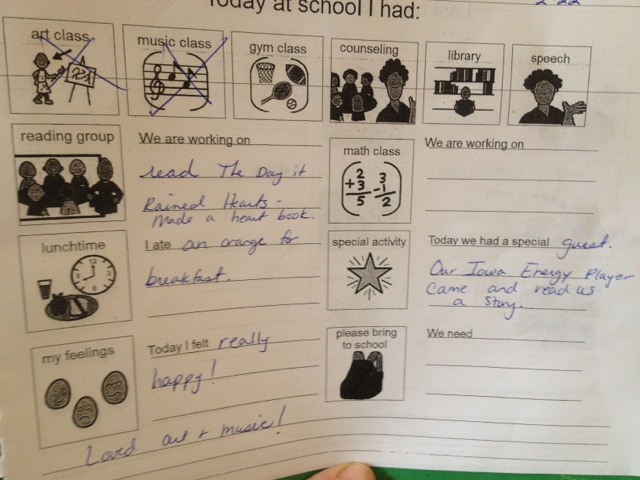 Today at school I had:
2-22
art class
music class
gym class
counseling
library
speech
reading group
We are working on
read The Day it
Rained Hearts -
Made a heart book.
math class
2 3
+3 -1
5 2
We are working on
lunchtime
12
9 3
6
I ate an orange for
breakfast.
special activity
Today we had a special guest.
Our Iowa Energy Player
came and read us
a story.
my feelings
Today I felt really
happy!
please bring
to school
We need
Loved art + music!